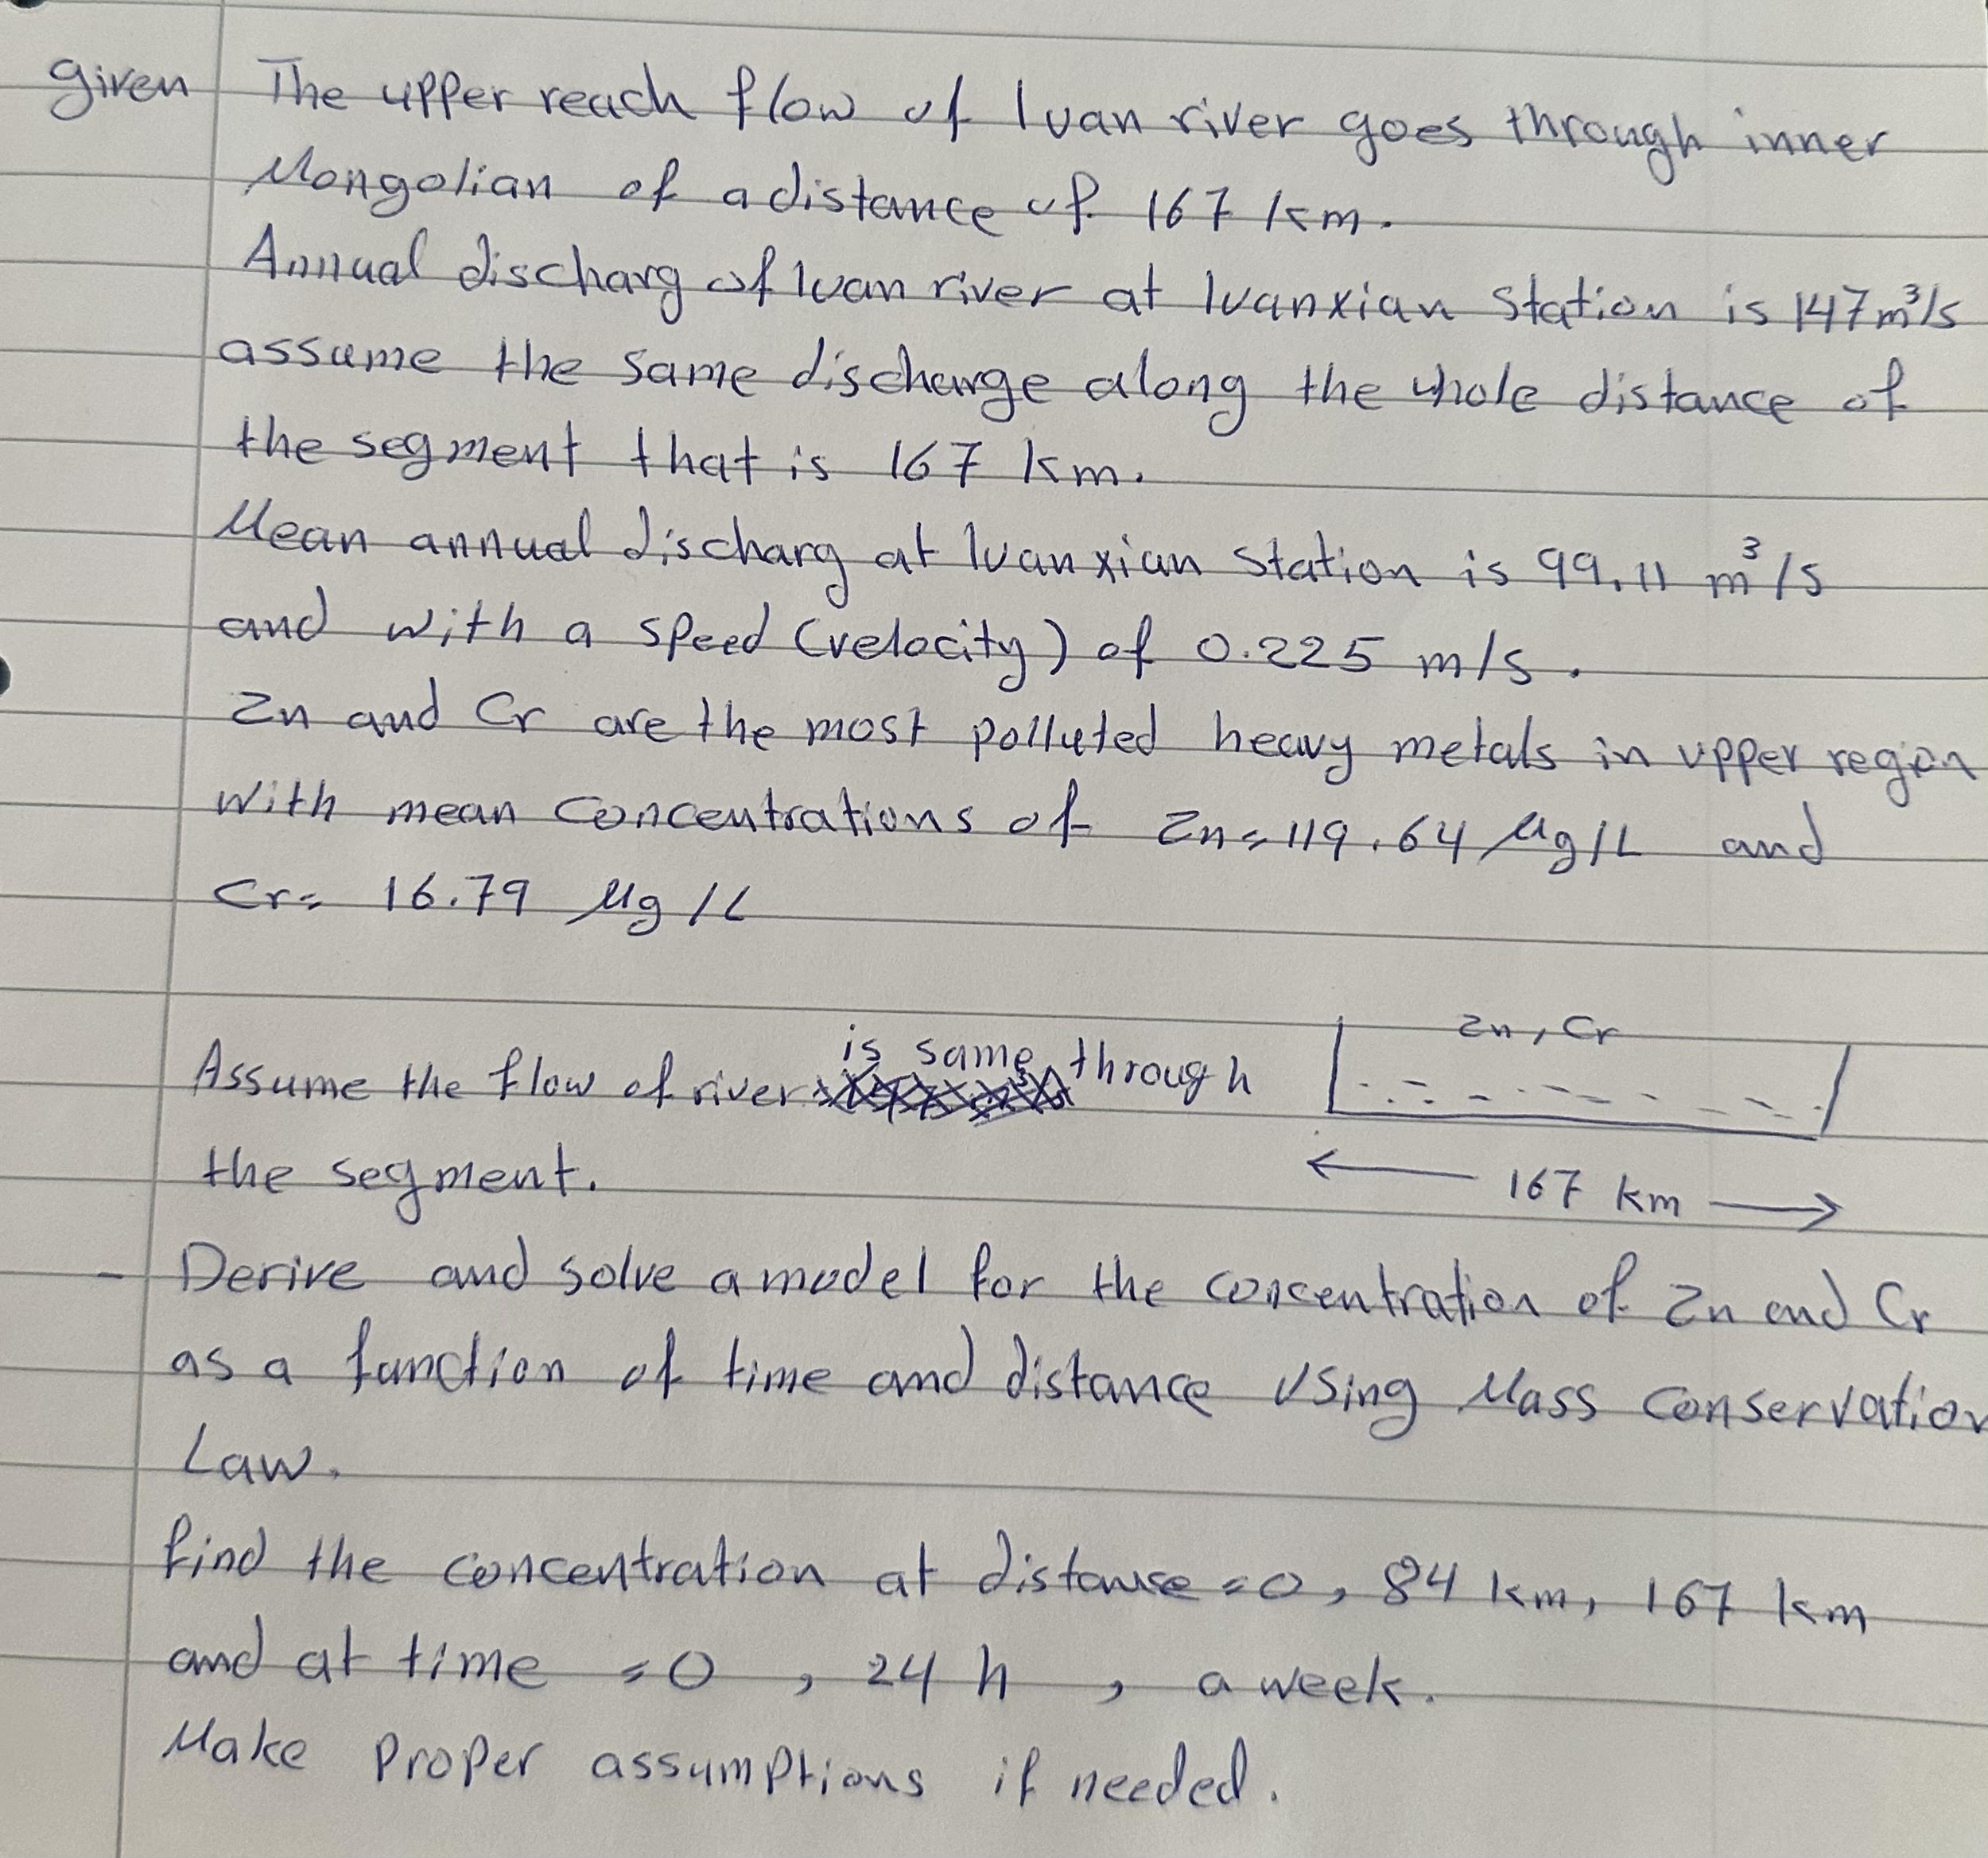 given The upper reach flow of luan river goes through inner
Mongolian of a distance of 167 km.
Annual discharg of luan river at luanxian station is 147 m³/s
assume the same discharge along the whole distance of
the segment that is 167 km.
Mean annual discharg at luanxian station is 99.11 m³/s
and with a speed (velocity) of 0.225 m/s.
Zn and Cr are the most polluted heavy metals in upper region
with mean concentrations of Zn = 119.64 μg/L and
Cr = 16.79 μg/L
Zn, Cr
Assume the flow of river is same through
the segment.
167 km
- Derive and solve a model for the concentration of Zn and Cr
as a function of time and distance using Mass conservation
Law.
find the concentration at distance = 0, 84 km, 167 km
and at time = 0, 24 h, a week.
Make proper assumptions if needed.